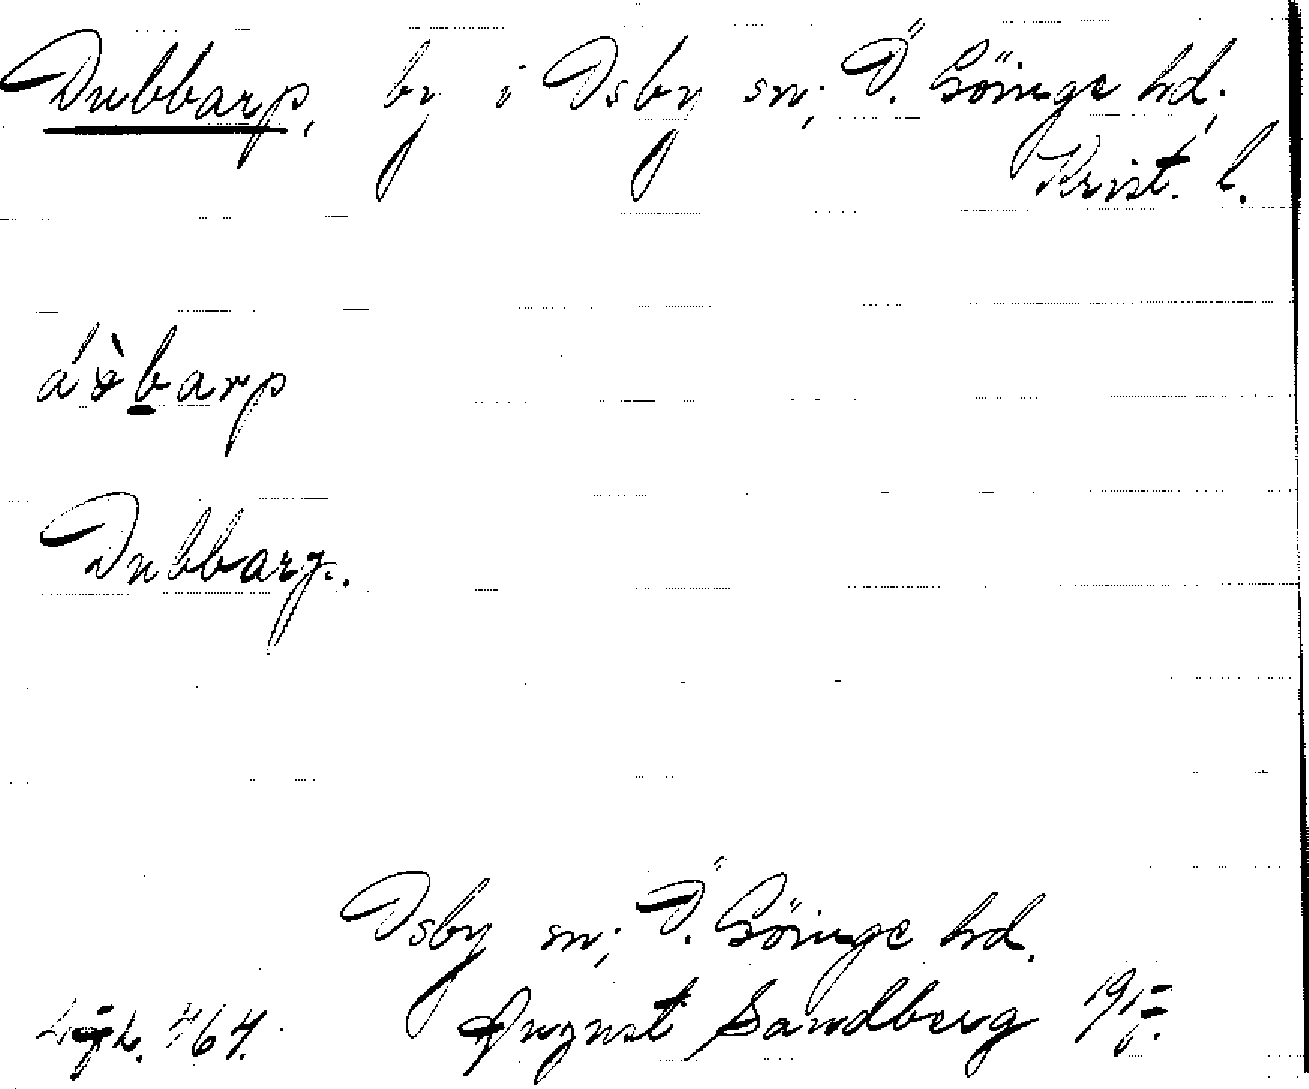 Dubbarp, by i Osby sn; Ö. Göinge hd;
Krist. l.
Dubbarp.
Osby sn; Ö. Göinge hd.
Ligh. 464. August Sandberg